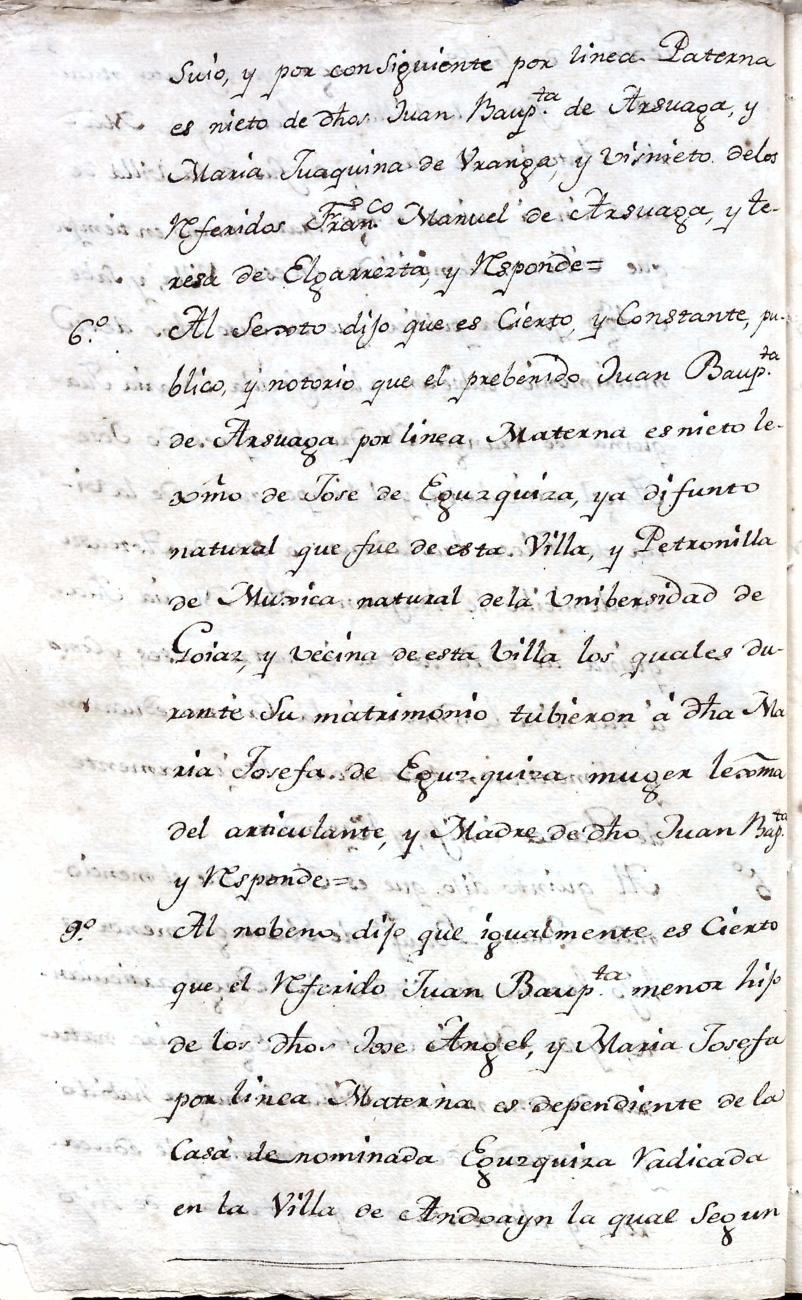 suio, y por consiguiente por linea Paterna
es nieto de dhos Juan Baup.ta de Arsuaga, y
Maria Juaquina de Vranga, y visnieto delos
Rferidos Fran.co Manuel de Arsuaga, y te-
resa de Elgarrezta, y Rsponde=
6.o Al Sexto dijo que es Cierto, y Constante, pu-
blico, y notorio que el prebenido Juan Baup.ta
de Arsuaga por linea Materna es nieto le-
xmo de Jose de Egurquiza, ya difunto
natural que fue de esta Villa, y Petronilla
de Muxica natural dela Vnibersidad de
Goiaz, y vecina de esta Villa los quales du-
rante su matrimonio tubieron à dha Ma
ria Josefa de Egurquiza muger lexma
del articulante, y Madre de dho Juan Bap.ta
y Rsponde=
9.o Al nobeno dijo que igualmente es Cierto
que el Rferido Juan Baup.ta menor hijo
de los dhos Jose Angel, y Maria Josefa
por linea Materna es dependiente de la
Casa de nominada Egurquiza Radicada
en la Villa de Andoayn la qual Segun